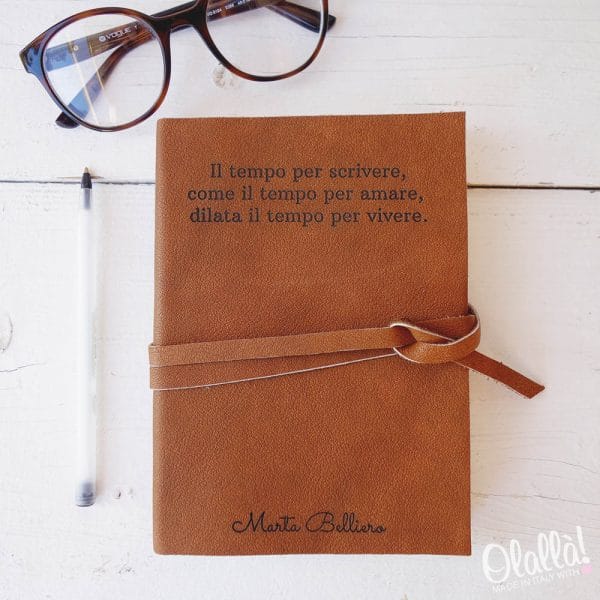 VOGUE
Il tempo per scrivere,
come il tempo per amare,
dilata il tempo per vivere.
Marta Belliero
Olallà!
MADE IN ITALY WITH